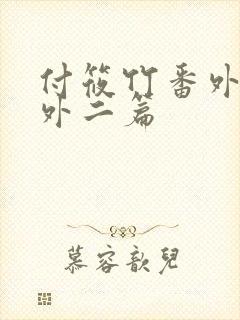 付筱竹番外
外二篇
慕容歆兒